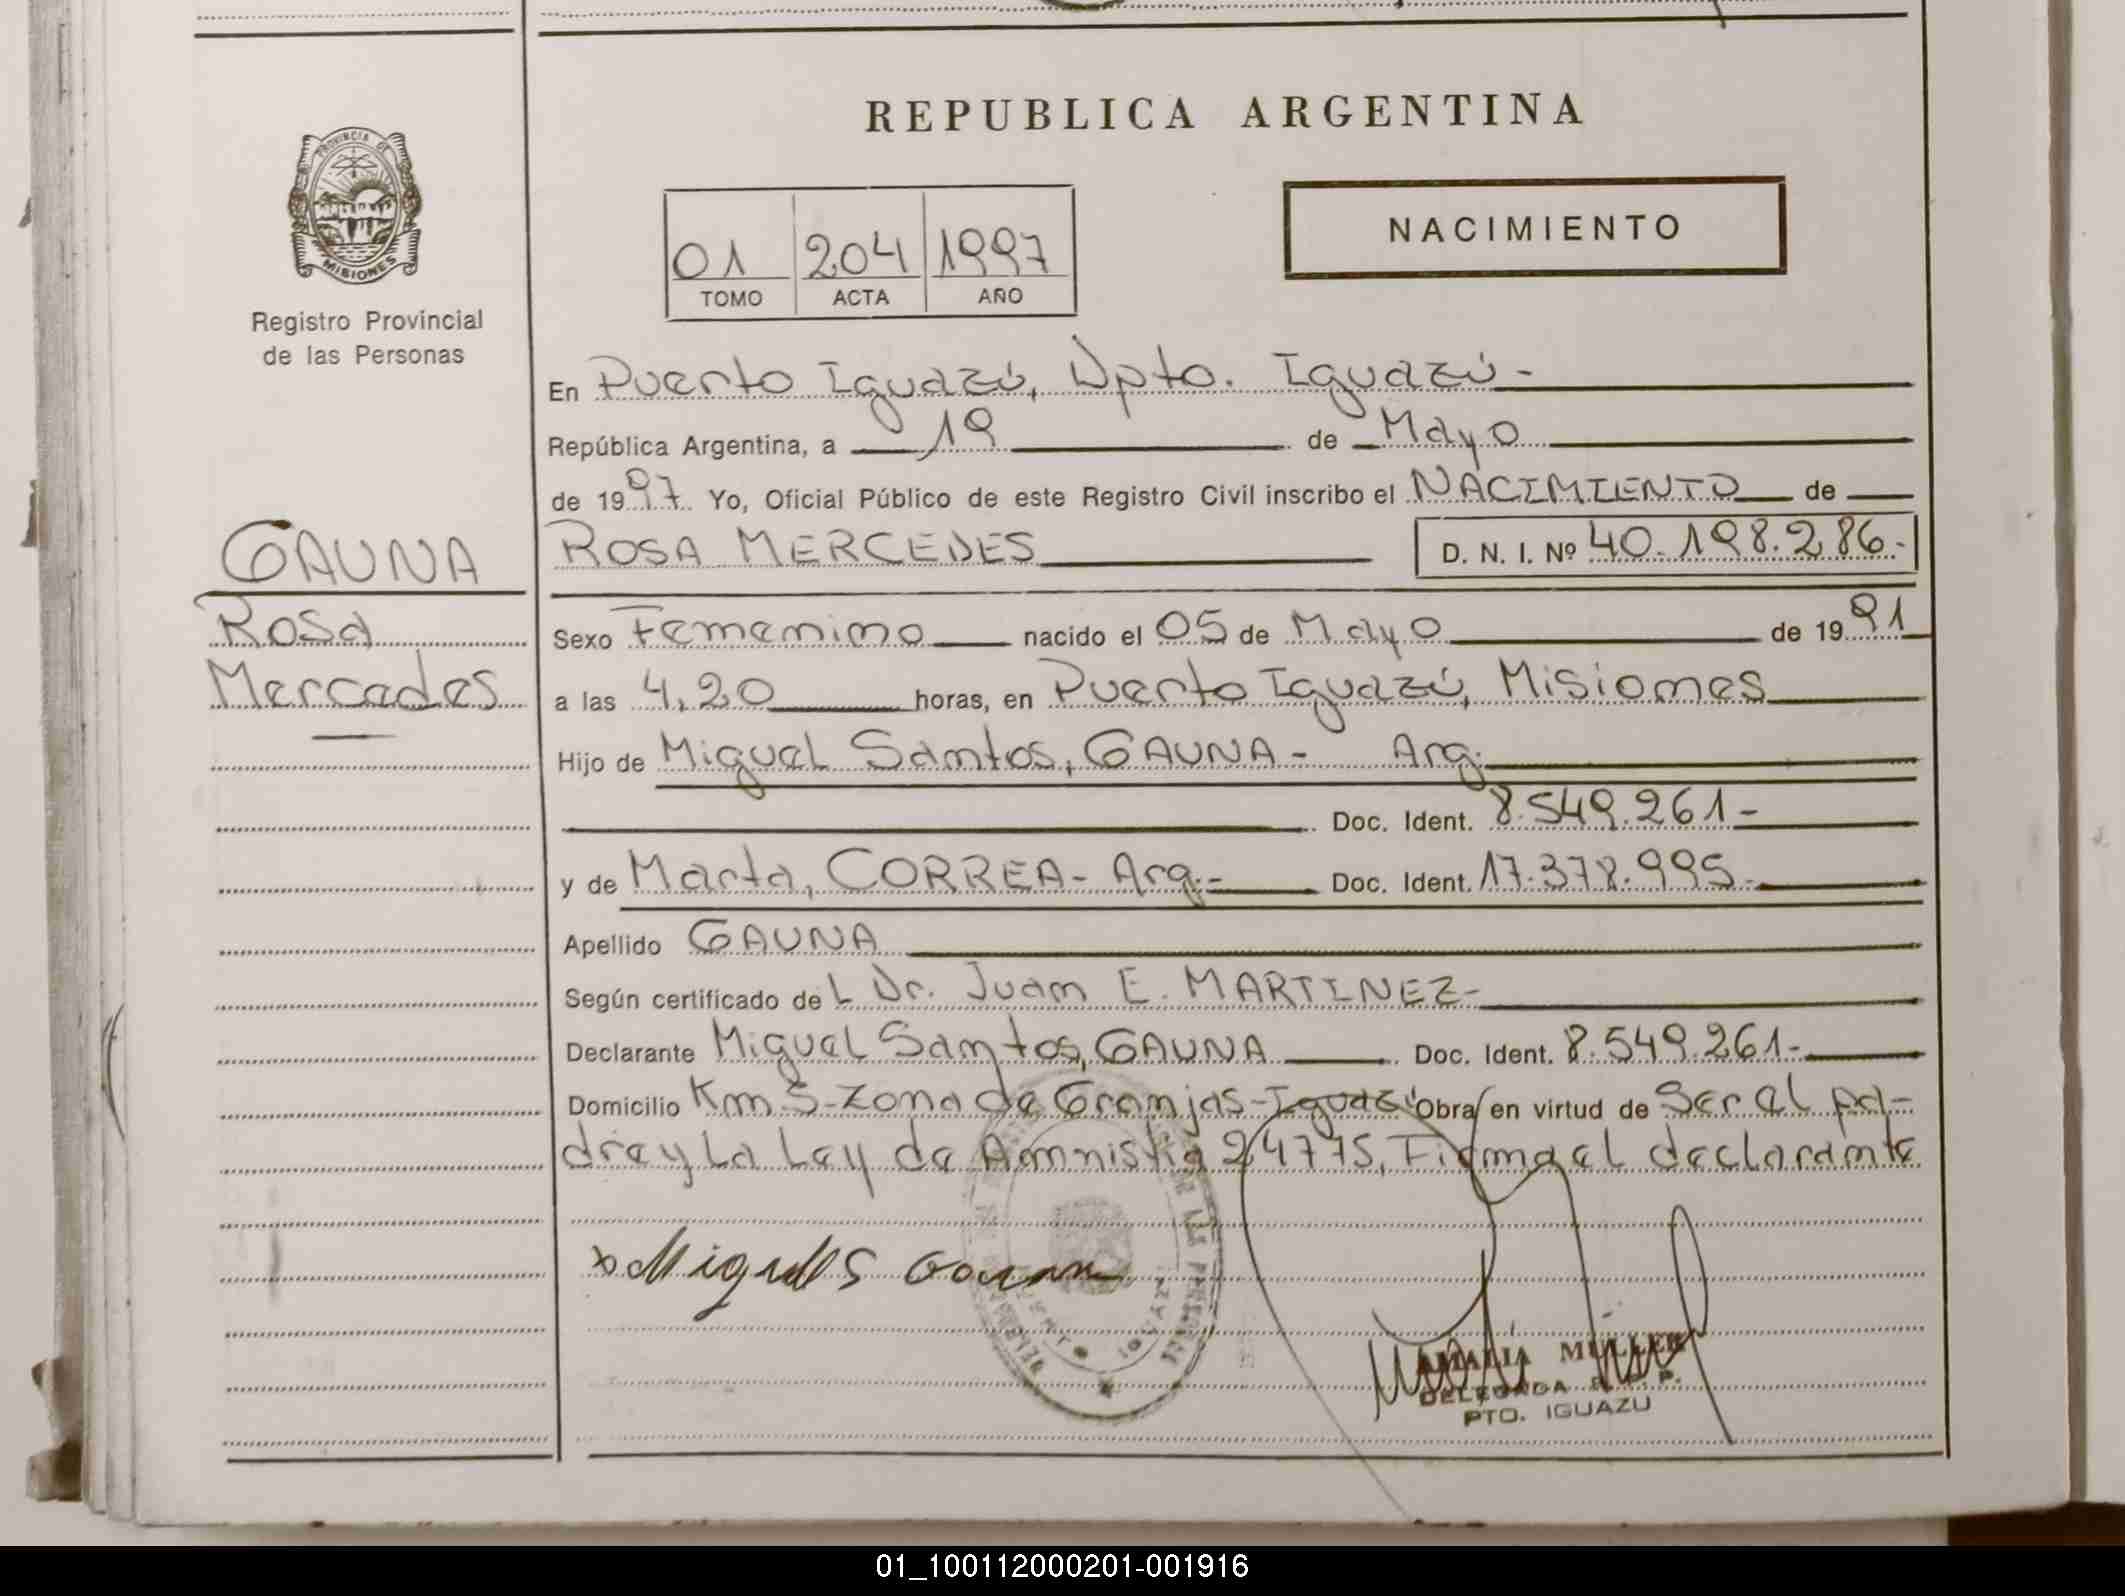 REPUBLICA ARGENTINA
PROVINCIA DE
MISIONES
Registro Provincial
de las Personas
01 204 1997
TOMO ACTA AÑO
NACIMIENTO
En Puerto Iguazú, Dpto. Iguazú -
República Argentina, a 19 de Mayo
de 1997. Yo, Oficial Público de este Registro Civil inscribo el NACIMIENTO de
GAUNA
Rosa
Mercedes
ROSA MERCEDES D. N. I. Nº 40.198.286.-
Sexo Femenino nacido el 05 de Mayo de 1991
a las 4,20 horas, en Puerto Iguazú, Misiones
Hijo de Miguel Santos, GAUNA - Arg.
Doc. Ident. 8.549.261-
y de Marta, CORREA - Arg.- Doc. Ident. 17.378.995.-
Apellido GAUNA
Según certificado del Dr. Juan E. MARTINEZ-
Declarante Miguel Santos, GAUNA Doc. Ident. 8.549.261.-
Domicilio Km 5-Zona de Granjas-Iguazú Obra en virtud de Ser el pa-
dre y La Ley de Amnistia 24775, Firma el declarante
Miguel S Gauna
AMALIA MULLER
DELEGADA R. P. P.
PTO. IGUAZU
01_100112000201-001916